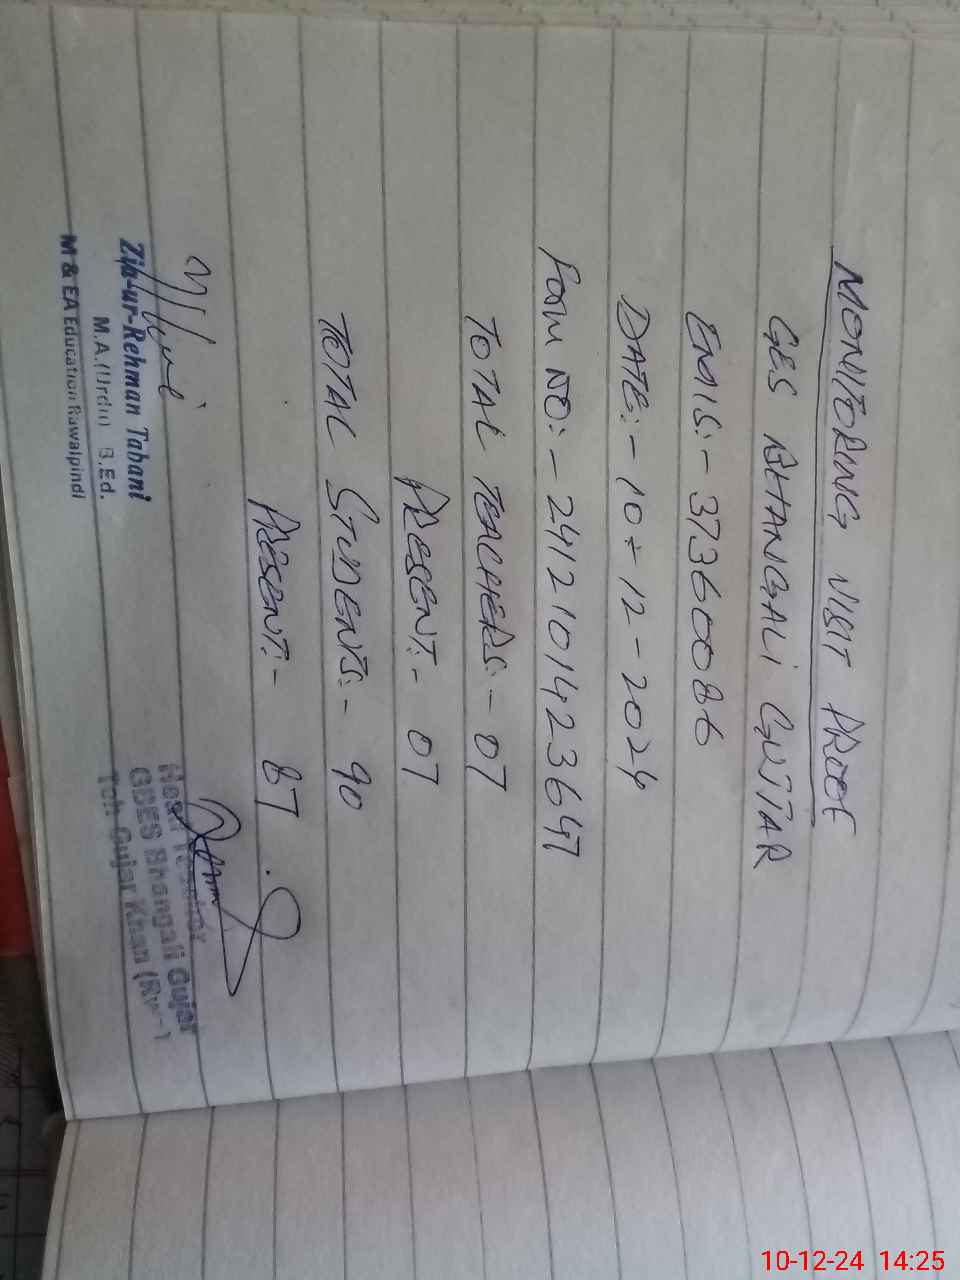 MONITORING VISIT PROOF
GES BHANGALI GUJJAR
EMIS:- 37360086
DATE:- 10-12-2024
FORM NO:- 241210142364
TOTAL TEACHERS:- 07
PRESENT:- 07
TOTAL STUDENTS:- 90
PRESENT:- 87
Zia-ur-Rehman Tabani
M.A.(Urdu) B.Ed.
M & EA Education Rawalpindi
Head Teacher
GBES Bhangali Gujar
Teh Gujar Khan
10-12-24 14:25